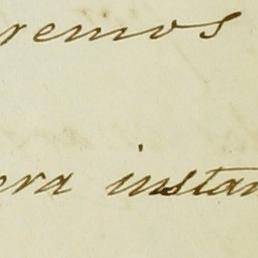 remos
era instan